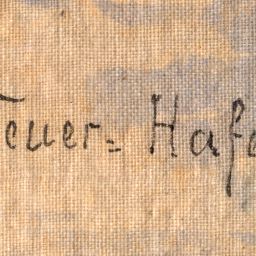 Teuer= Hafe